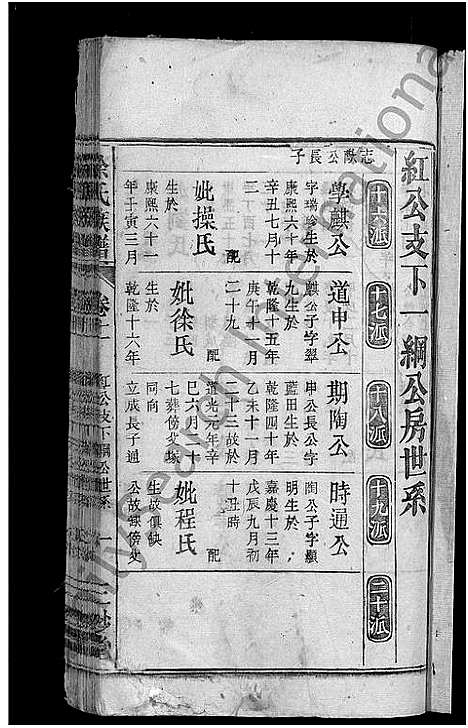 紅公支下一綱公房世系
十六派
十七派
十八派
十九派
二十派
志猷公長子
學麒公
字瑞紛生於
康熙六十年
辛丑七月十
配
妣操氏
生於
康熙六十一
年壬寅三月
道申公
麒公子字翠
九生於
乾隆十五年
庚午十一月
二十九
配
妣徐氏
生於
乾隆十六年
期陶公
申公長公字
藍田生於
乾隆四十年
乙未十一月
二十三故於
道光元年辛
巳六月十
七葬傍史塚
同向
立成長子通
時通公
陶公子字顯
明生於
嘉慶十三年
戊辰九月初
十丑時
配
妣程氏
生故俱缺
公故螟傍史
徐氏族譜
卷之二
紅公支下綱公世系
一